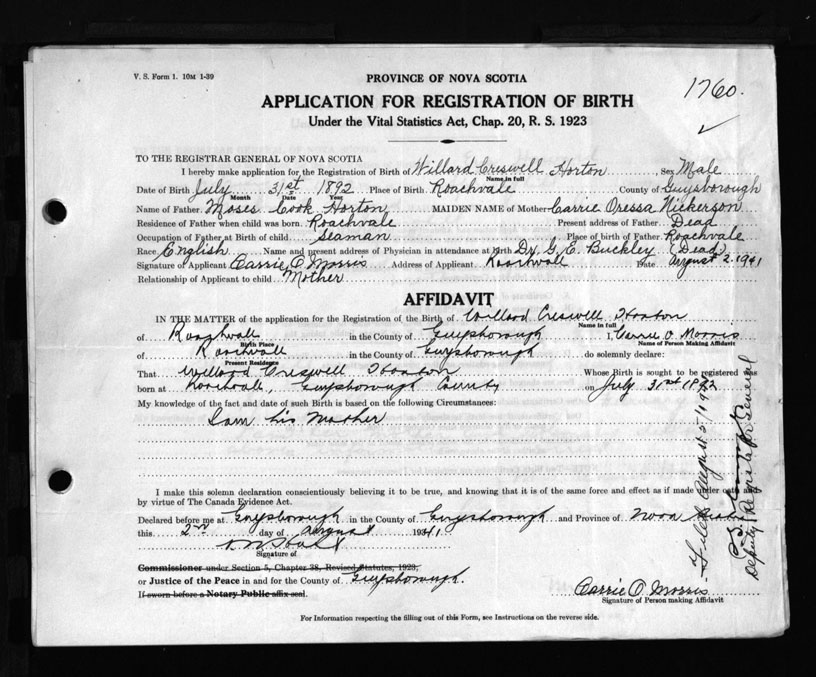 V. S. Form 1. 10M 1-39
PROVINCE OF NOVA SCOTIA
1760.
APPLICATION FOR REGISTRATION OF BIRTH
Under the Vital Statistics Act, Chap. 20, R. S. 1923
TO THE REGISTRAR GENERAL OF NOVA SCOTIA
I hereby make application for the Registration of Birth of Willard Creswell Horton Sex Male
Name in full
Date of Birth July 31st 1892 Place of Birth Roachvale County of Guysborough
Month Date Year
Name of Father Moses Cook Horton MAIDEN NAME of Mother Carrie Oressa Nickerson
Residence of Father when child was born Roachvale Present address of Father Dead
Occupation of Father at Birth of child Seaman Place of birth of Father Roachvale
Race English Name and present address of Physician in attendance at Birth Dr. G. E. Buckley (Dead)
Signature of Applicant Carrie O. Morris Address of Applicant Roachvale Date August 2. 1941
Relationship of Applicant to child Mother
AFFIDAVIT
IN THE MATTER of the application for the Registration of the Birth of Willard Creswell Horton
Name in full
of Roachvale in the County of Guysborough I, Carrie O. Morris
Birth Place Name of Person Making Affidavit
of Roachvale in the County of Guysborough do solemnly declare:
Present Residence
That Willard Creswell Horton Whose Birth is sought to be registered was
born at Roachvale, Guysborough County on July 31st 1892
My knowledge of the fact and date of such Birth is based on the following Circumstances:
I am his Mother
I make this solemn declaration conscientiously believing it to be true, and knowing that it is of the same force and effect as if made under oath
by virtue of The Canada Evidence Act.
Declared before me at Guysborough in the County of Guysborough and Province of Nova Scotia
this 2nd day of August 1941
Signature of
Commissioner under Section 5, Chapter 38, Revised Statutes, 1923,
or Justice of the Peace in and for the County of Guysborough.
If sworn before a Notary Public affix seal.
Carrie O. Morris
Signature of Person making Affidavit
For Information respecting the filling out of this Form, see Instructions on the reverse side.
Filed August 5/19
Deputy Registrar General